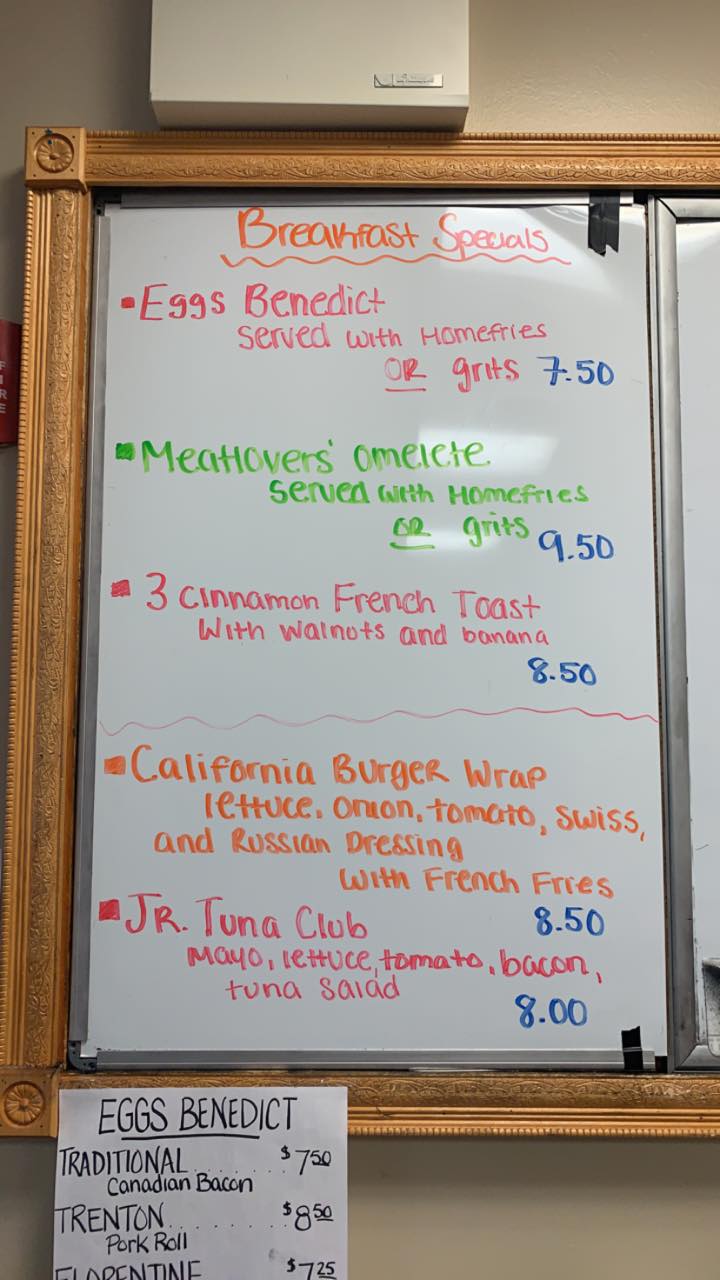 Breakfast Specials
Eggs Benedict
Served with Homefries
OR grits 7.50
Meatlovers' omelete
Served with Homefries
OR grits 9.50
3 cinnamon French Toast
With walnuts and banana
8.50
California Burger Wrap
lettuce, onion, tomato, swiss,
and Russian Dressing
with French Fries
8.50
JR. Tuna Club
Mayo, lettuce, tomato, bacon,
tuna salad
8.00
EGGS BENEDICT
TRADITIONAL....... $750
Canadian Bacon
TRENTON......... $850
Pork Roll
FLORENTINE $725